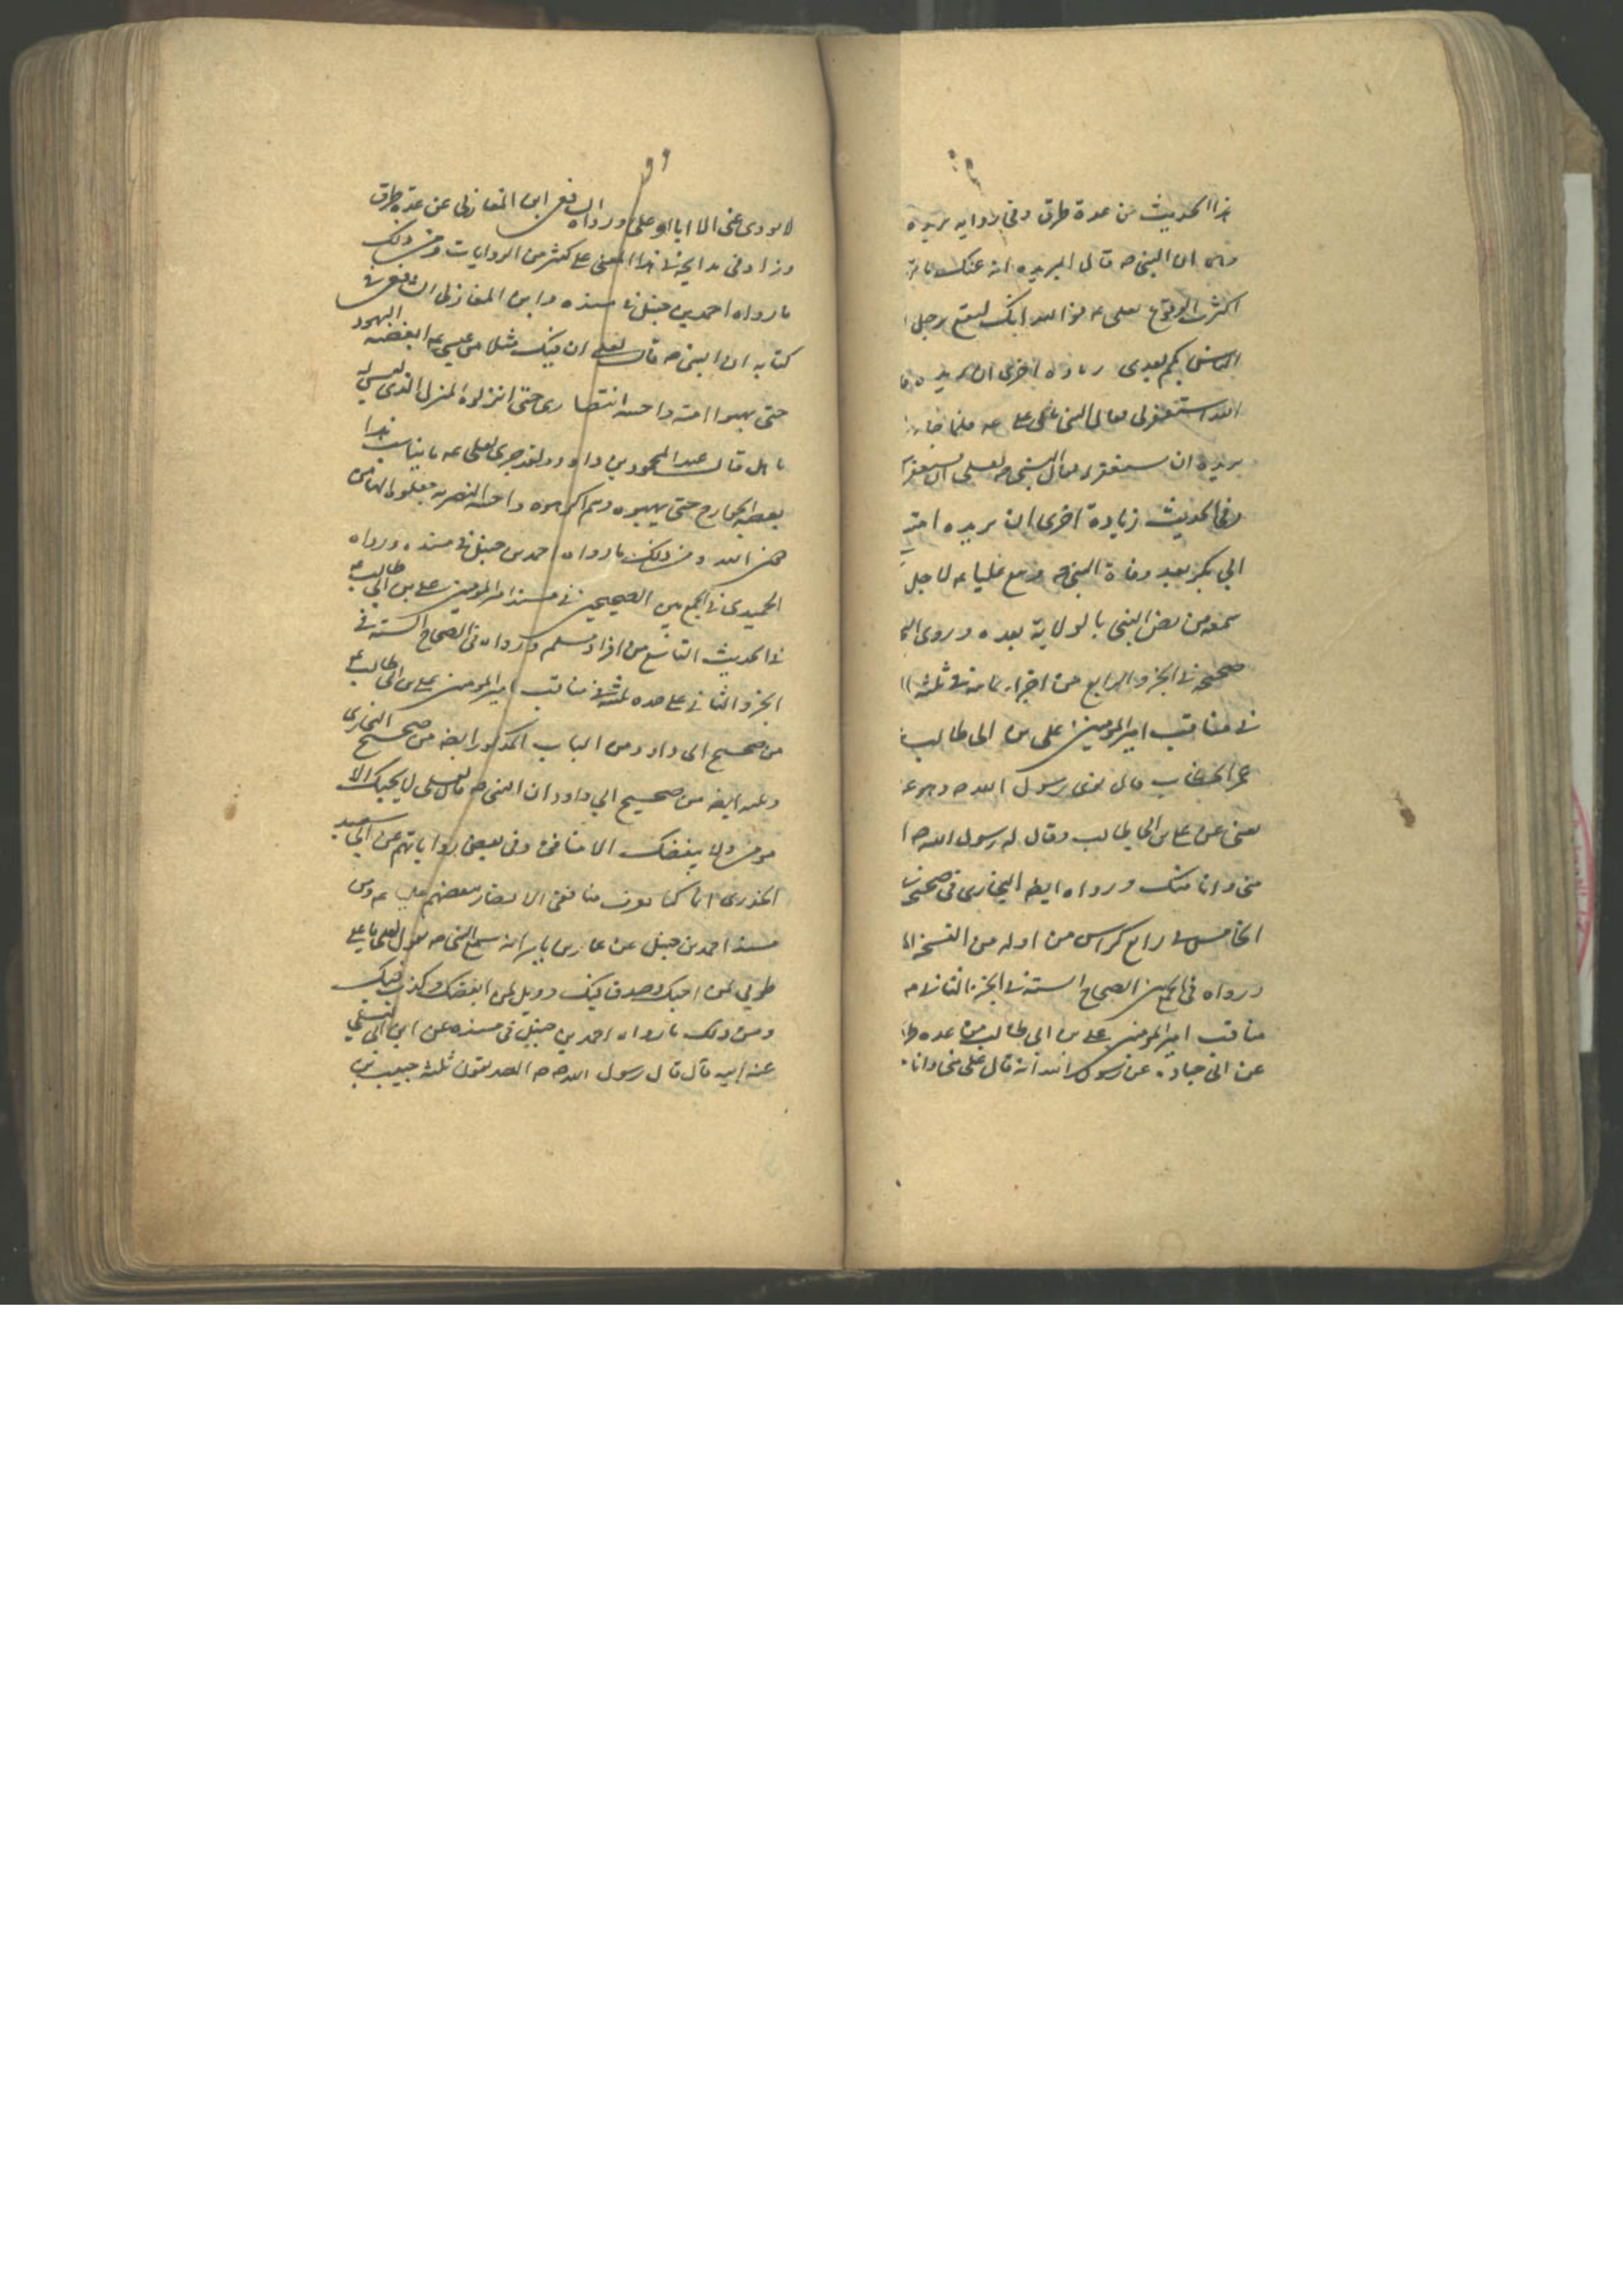 هذا الحديث من عدة طرق وفي رواية بريده
ان النبي ص قال لبريده انه عنك يا بر
اكثرت الوقوع لعلي ع فوالله انك لتقع برجل
الناس بكم بعدي زيادة اخرى ان بريده
الله استغفر لي فقال النبي على ع فلما جاء
بريده ان يستغفر له فقال النبي ص لعلي ان تستغفر
وفي الحديث زيادة اخرى ان بريده امتن
ابي بكر بعد وفاة النبي ص وبيع عليا ع لاجل
سمعه من نص النبي بالولاية بعده وروى الب
صحيحه في الجزو الرابع من اجزاء ثمانية في ثلثه
في مناقب امير المومنين علي بن ابي طالب
عمر الخطاب قال توفى رسول الله ص وهو عن
يعني عن علي بن ابي طالب وقال له رسول الله ص ا
مني وانا منك ورواه ايضا البخاري في صحيحه
الخامس في رابع كراس من اوله من النسخة
ورواه في الجمع بين الصحاح الستة في الجزء الثاني
مناقب امير المومنين علي بن ابي طالب من عده طر
عن ابي جناده عن رسول الله انه قال علي مني وانا
لا يودي عني الا انا او علي ورواه الشافعي ابن المغازلي عن عدة طرق
وزاد في مدايحه في هذا المعنى على كثير من الروايات ومن ذلك
ما رواه احمد بن حنبل في مسنده وابن المغازلي الشافعي في
كتابه ان النبي ص قال لعلي ان فيك مثلا من عيسى ع ابغضه اليهود
حتى بهتوا امه واحبه النصارى حتى انزلوه المنزل الذي ليس له
باهل قال عبد المحمود بن داود ولقد جرى لعلي ع ما يناسب هذا
بغضه الخوارج حتى بهتوه وهم اكرهوه واحبه النصيرية فجعلوه الها من
دون الله ومن ذلك ما رواه احمد بن حنبل في مسنده ورواه
الحميدي في الجمع بين الصحيحين في مسند امير المومنين علي بن ابي طالب ع
في الحديث التاسع من افراد مسلم ورواه في الصحاح الستة في
الجزو الثاني على حده ثلثة في مناقب امير المومنين علي بن ابي طالب ع
من صحيح ابي داود ومن الباب المذكور ايضا من صحيح البخاري
وعنه ايضا من صحيح ابي داود ان النبي ص قال لعلي لا يحبك الا
مومن ولا يبغضك الا منافق وفي بعض رواياتهم عن ابي سعيد
الخدري انا كنا نعرف منافقي الانصار ببغضهم عليا ع ومن
مسند احمد بن حنبل عن عمار بن ياسر انه سمع النبي ص يقول لعلي يا علي
طوبى لمن احبك وصدق فيك وويل لمن ابغضك وكذب فيك
ومن ذلك ما رواه احمد بن حنبل في مسنده عن ابن ابي ليلى
عن ابيه قال قال رسول الله ص الصديقون ثلثه حبيب بن